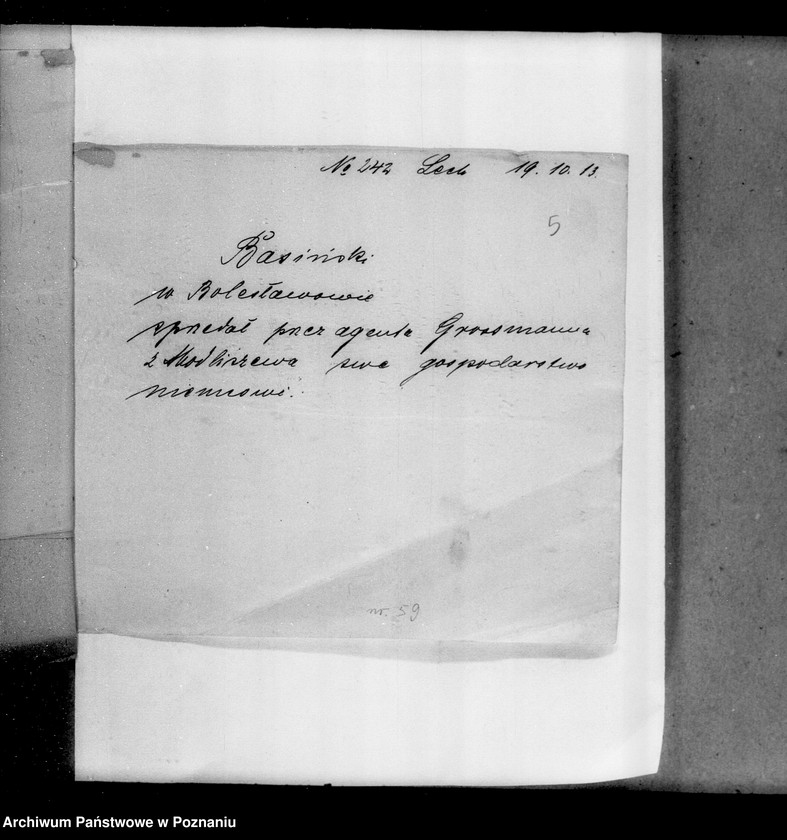 № 242 Lech 19. 10. 13.
5
Basiński
w Bolesławowie
sprzedał przez agenta Grossmanna
z Modliszewa swe gospodarstwo
niemcowi.
nr. 59
Archiwum Państwowe w Poznaniu